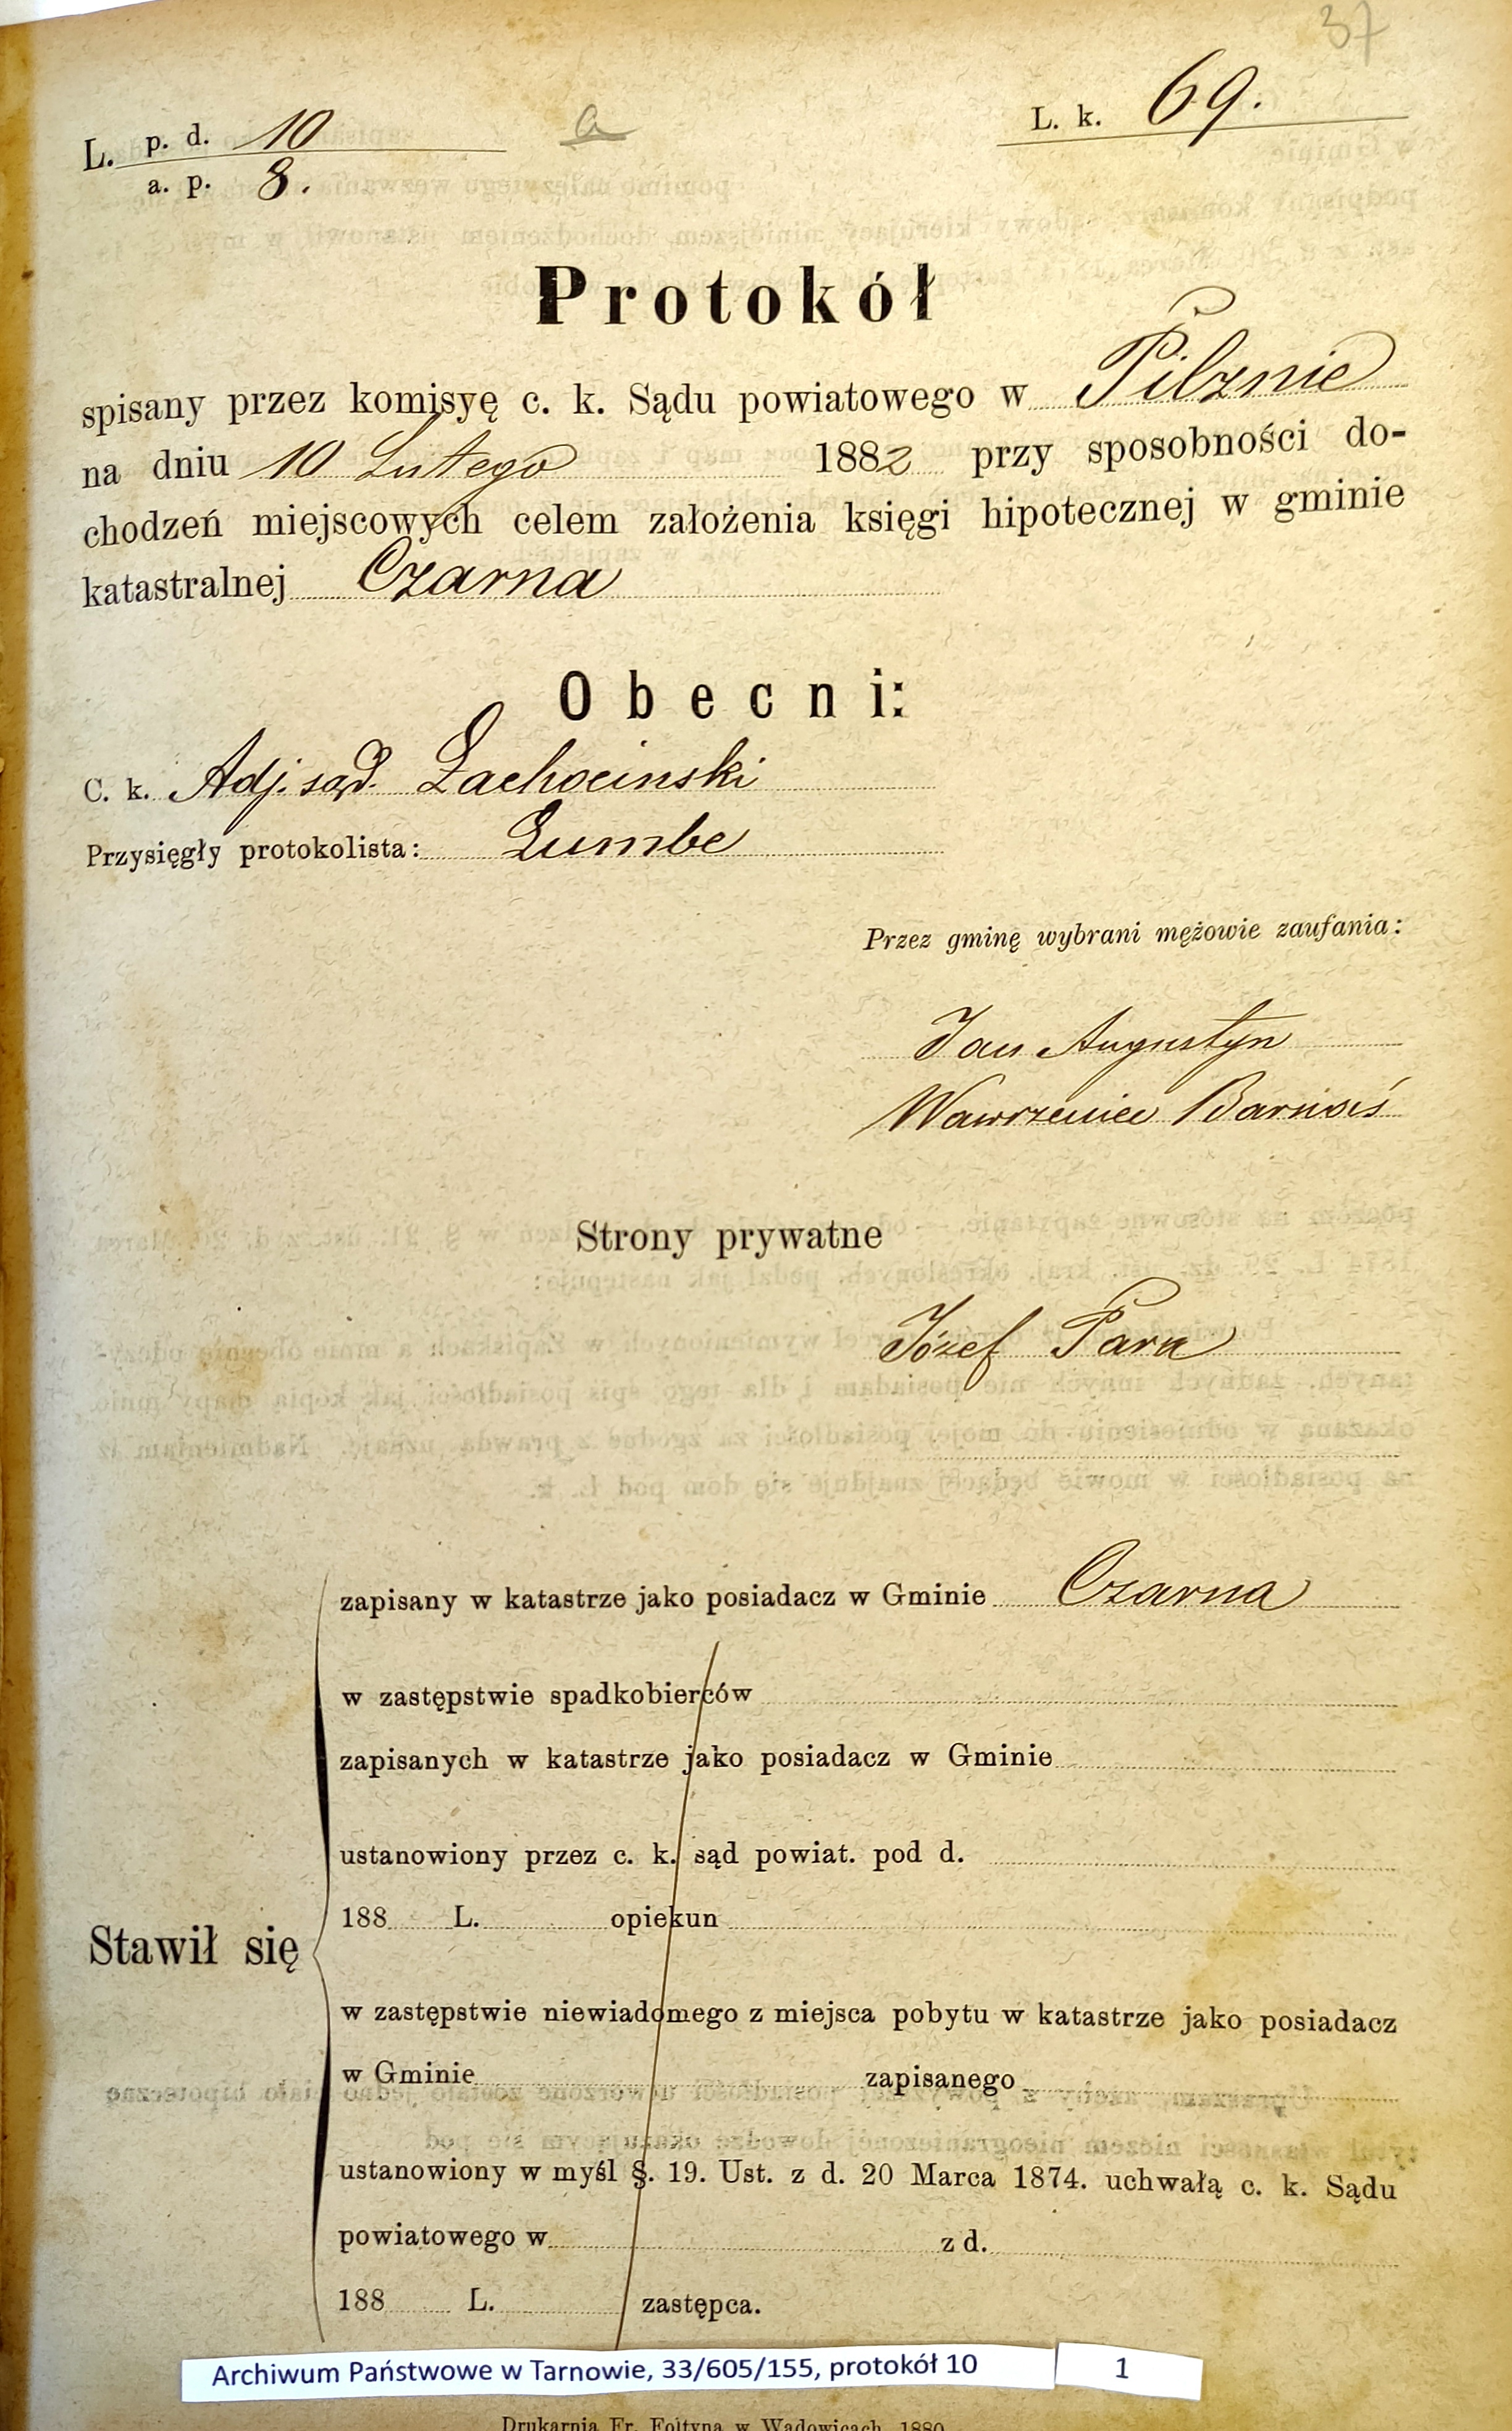 37
L. p. d. 10
a. p. 8.
a
L. k. 69.
Protokół
spisany przez komisyę c. k. Sądu powiatowego w Pilznie
na dniu 10 Lutego 1882 przy sposobności do-
chodzeń miejscowych celem założenia księgi hipotecznej w gminie
katastralnej Czarna
Obecni:
C. k. Adj. sąd. Żachocinski
Przysięgły protokolista: Lumbe
Przez gminę wybrani mężowie zaufania:
Jan Augustyn
Wawrzeniec Barnaś
Strony prywatne
Józef Para
zapisany w katastrze jako posiadacz w Gminie Czarna
w zastępstwie spadkobierców
zapisanych w katastrze jako posiadacz w Gminie
ustanowiony przez c. k. sąd powiat. pod d.
188 L. opiekun
Stawił się
w zastępstwie niewiadomego z miejsca pobytu w katastrze jako posiadacz
w Gminie zapisanego
ustanowiony w myśl §. 19. Ust. z d. 20 Marca 1874. uchwałą c. k. Sądu
powiatowego w z d.
188 L. zastępca.
Archiwum Państwowe w Tarnowie, 33/605/155, protokół 10 1
Drukarnia Fr. Foltyna w Wadowicach 1880